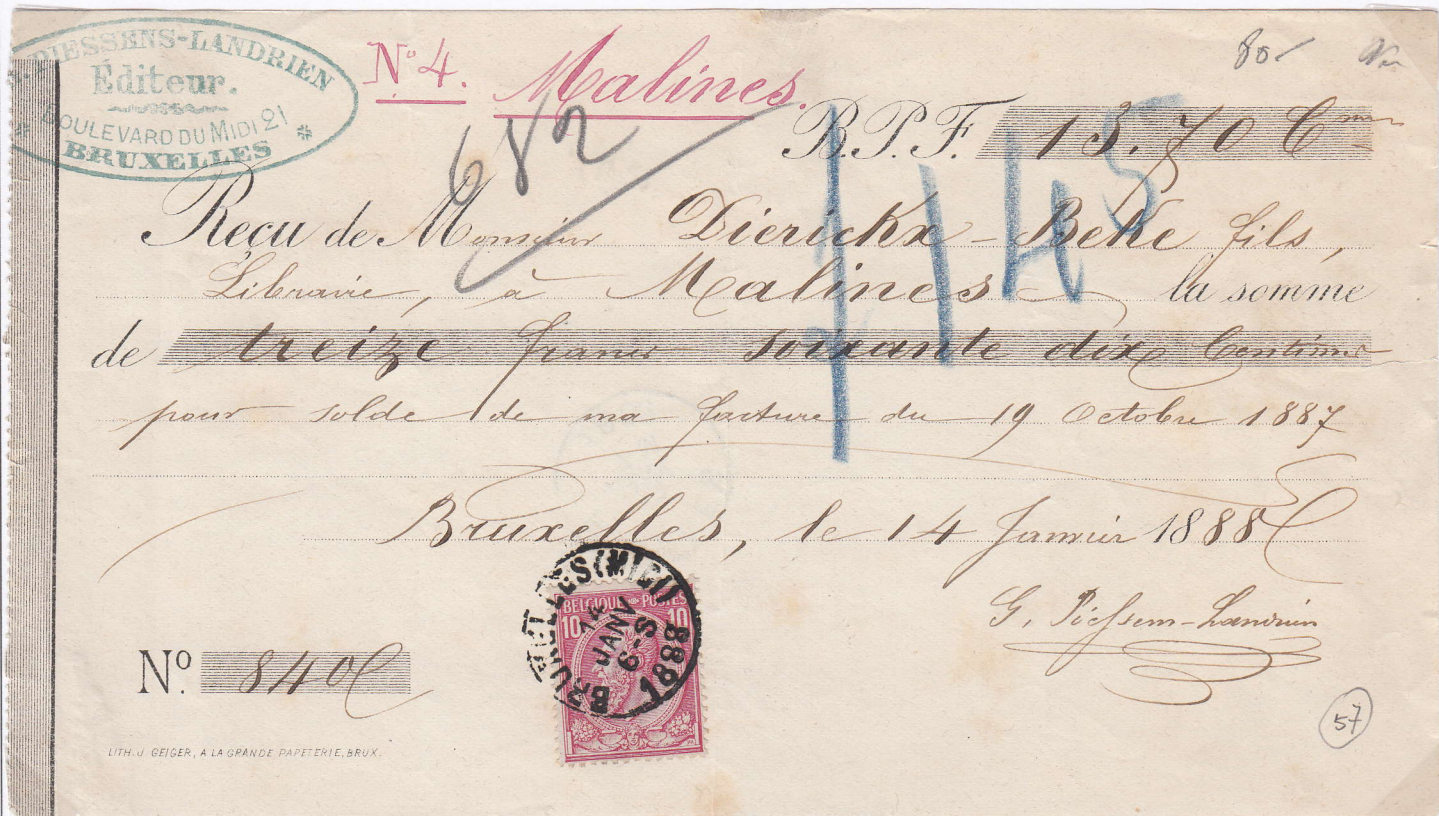 PIESSENS-LANDRIEN
Éditeur.
BOULEVARD DU MIDI 21
BRUXELLES
Nº 4. Malines.
80-
682
B.P.F. 13.70 Cmes
1145
Reçu de Monsieur Dierickx-Beke fils,
Librairie, à Malines la somme
de treize francs soixante dix Centimes
pour solde de ma facture du 19 Octobre 1887
Bruxelles, le 14 Janvier 1888
G. Piessens-Landrien
BRUXELLES (MIDI)
14
JANV
6-S
1888
BELGIQUE POSTES
10 10
Nº. 840
57
LITH. J. GEIGER, A LA GRANDE PAPETERIE, BRUX.